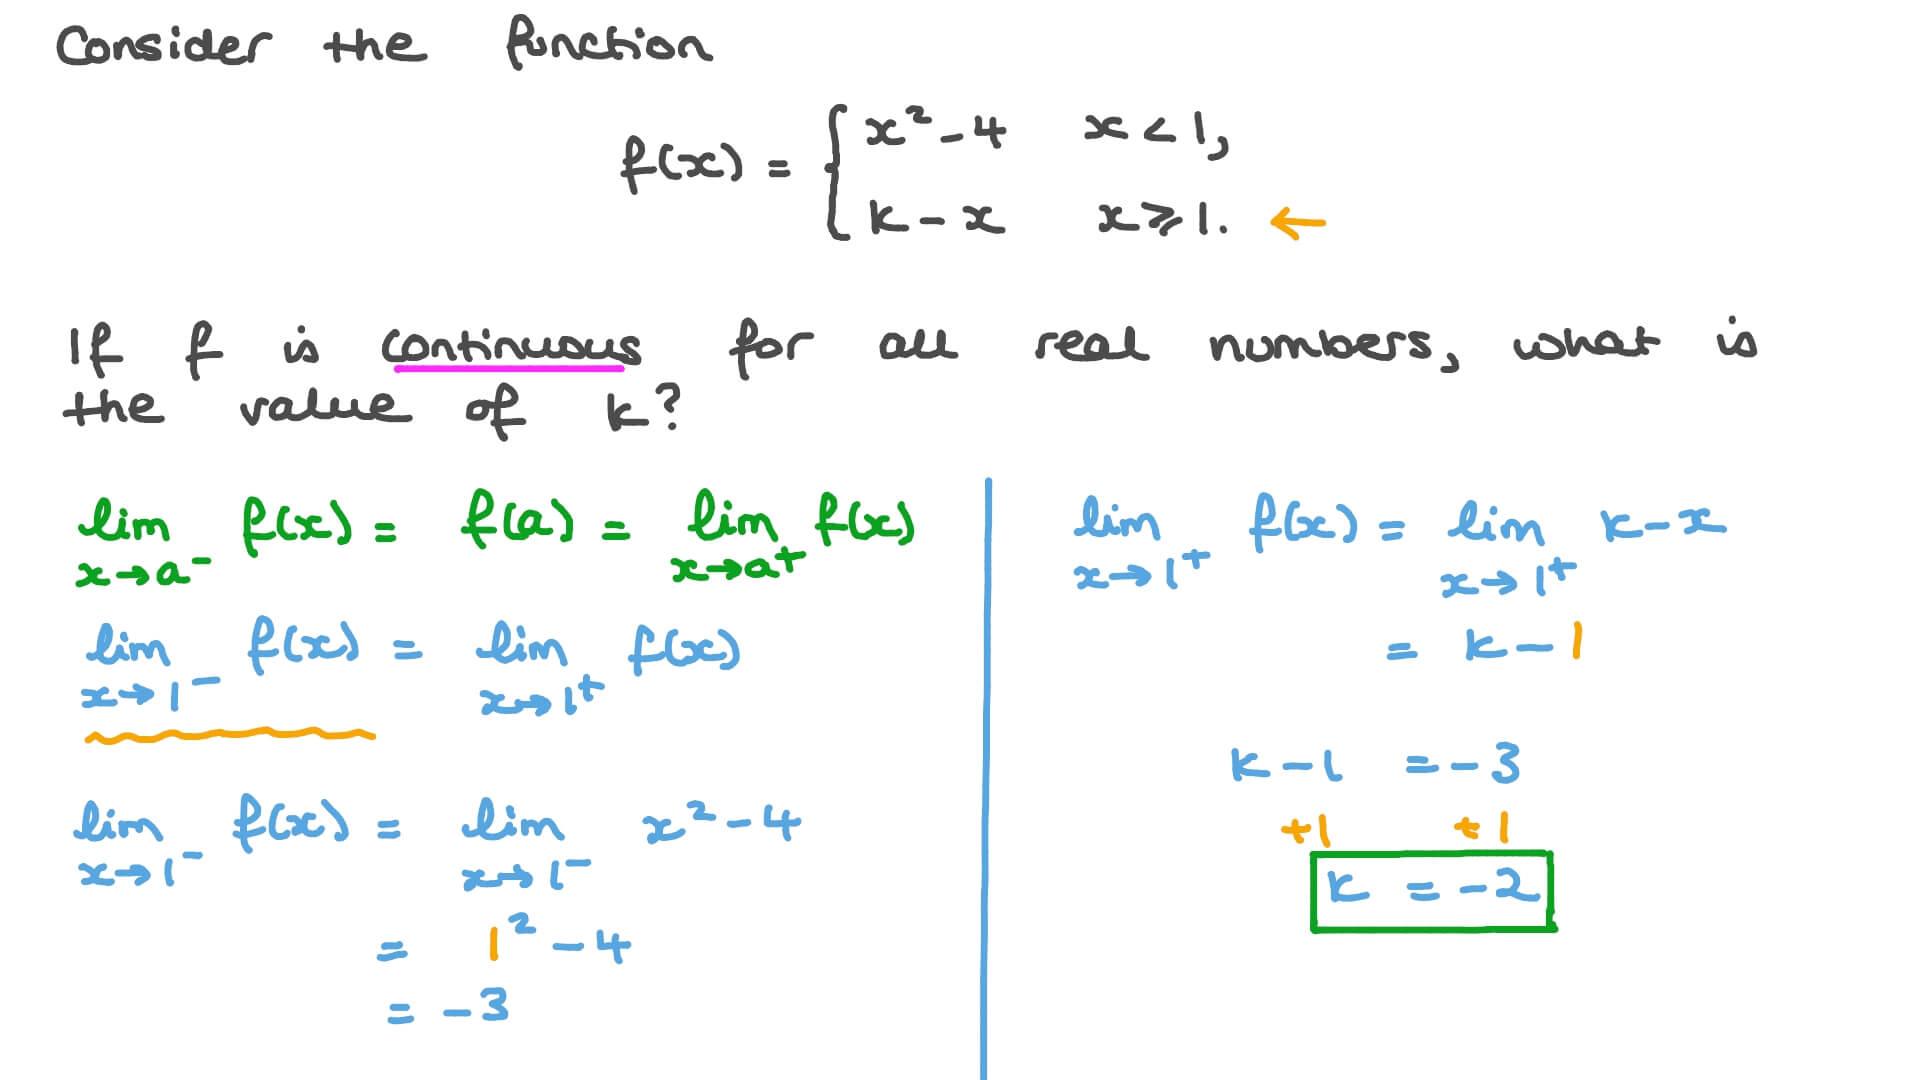 Consider the function
f(x) = { x² - 4 x < 1,
k - x x ⩾ 1. ←
If f is continuous for all real numbers, what is
the value of k?
lim x→a⁻ f(x) = f(a) = lim x→a⁺ f(x)
lim x→1⁻ f(x) = lim x→1⁺ f(x)
lim x→1⁻ f(x) = lim x→1⁻ x² - 4
= 1² - 4
= -3
lim x→1⁺ f(x) = lim x→1⁺ k - x
= k - 1
k - 1 = -3
+1 +1
k = -2